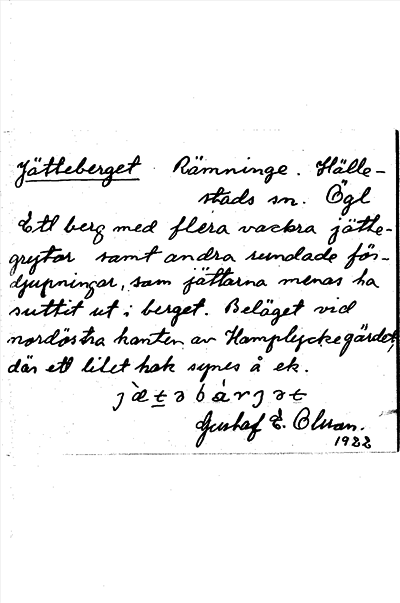 Jätteberget. Rämninge. Hälle-
stads sn. Ögl
Ett berg med flera vackra jätte-
grytor samt andra rundade för-
djupningar, som jättarna menas ha
suttit ut i berget. Beläget vid
nordöstra kanten av Hamplyckegärdet,
där ett litet hak synes å ek.
Gustaf E. Olsson.
1922